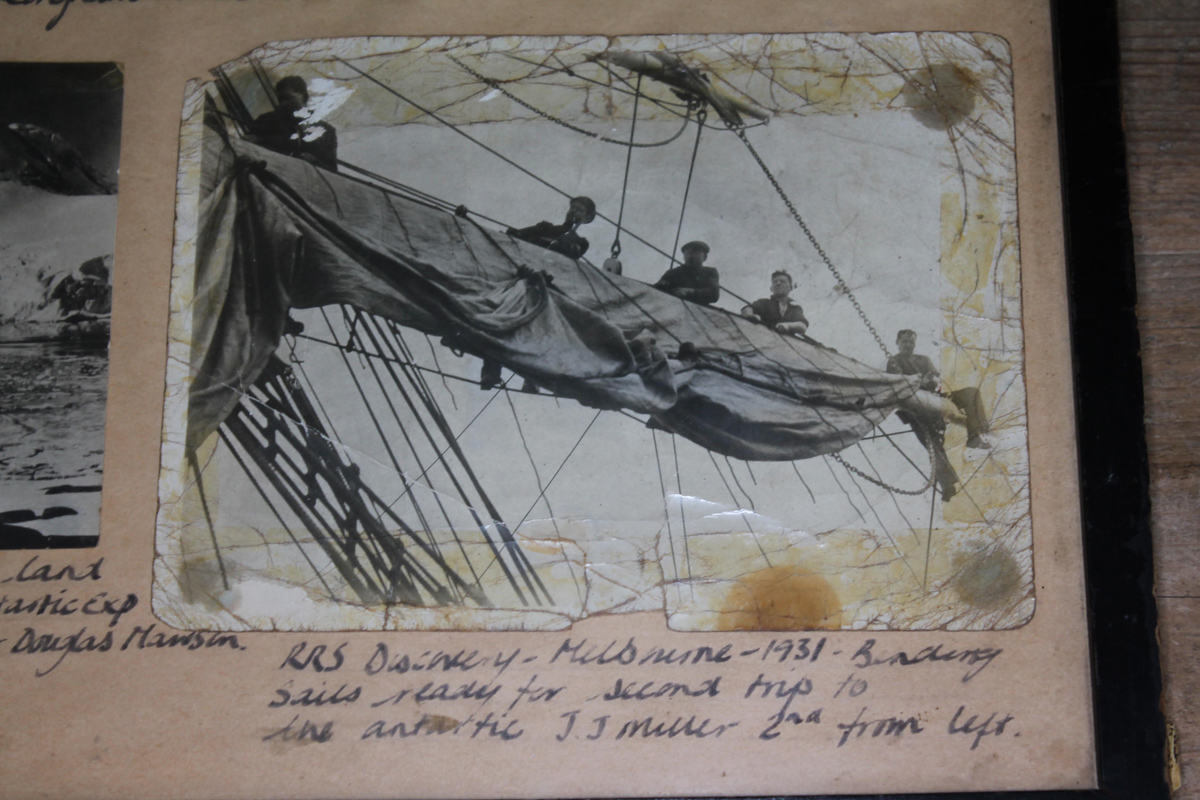 land
Exp
Douglas Mawson.
RRS Discovery - Melbourne - 1931 - Bending
Sails ready for second trip to
the antartic J.J Miller 2nd from left.